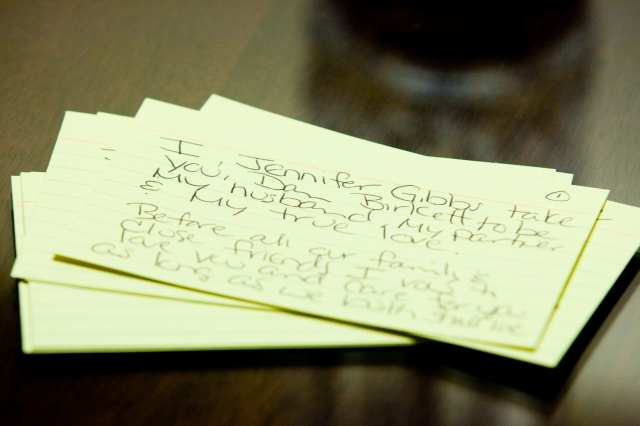 ①
I, Jennifer Gibbs take
you, Dan Birkett to be
My husband My partner
& My true love.
Before all our family &
close friends I vow to
love you and care for you
as long as we both shall live